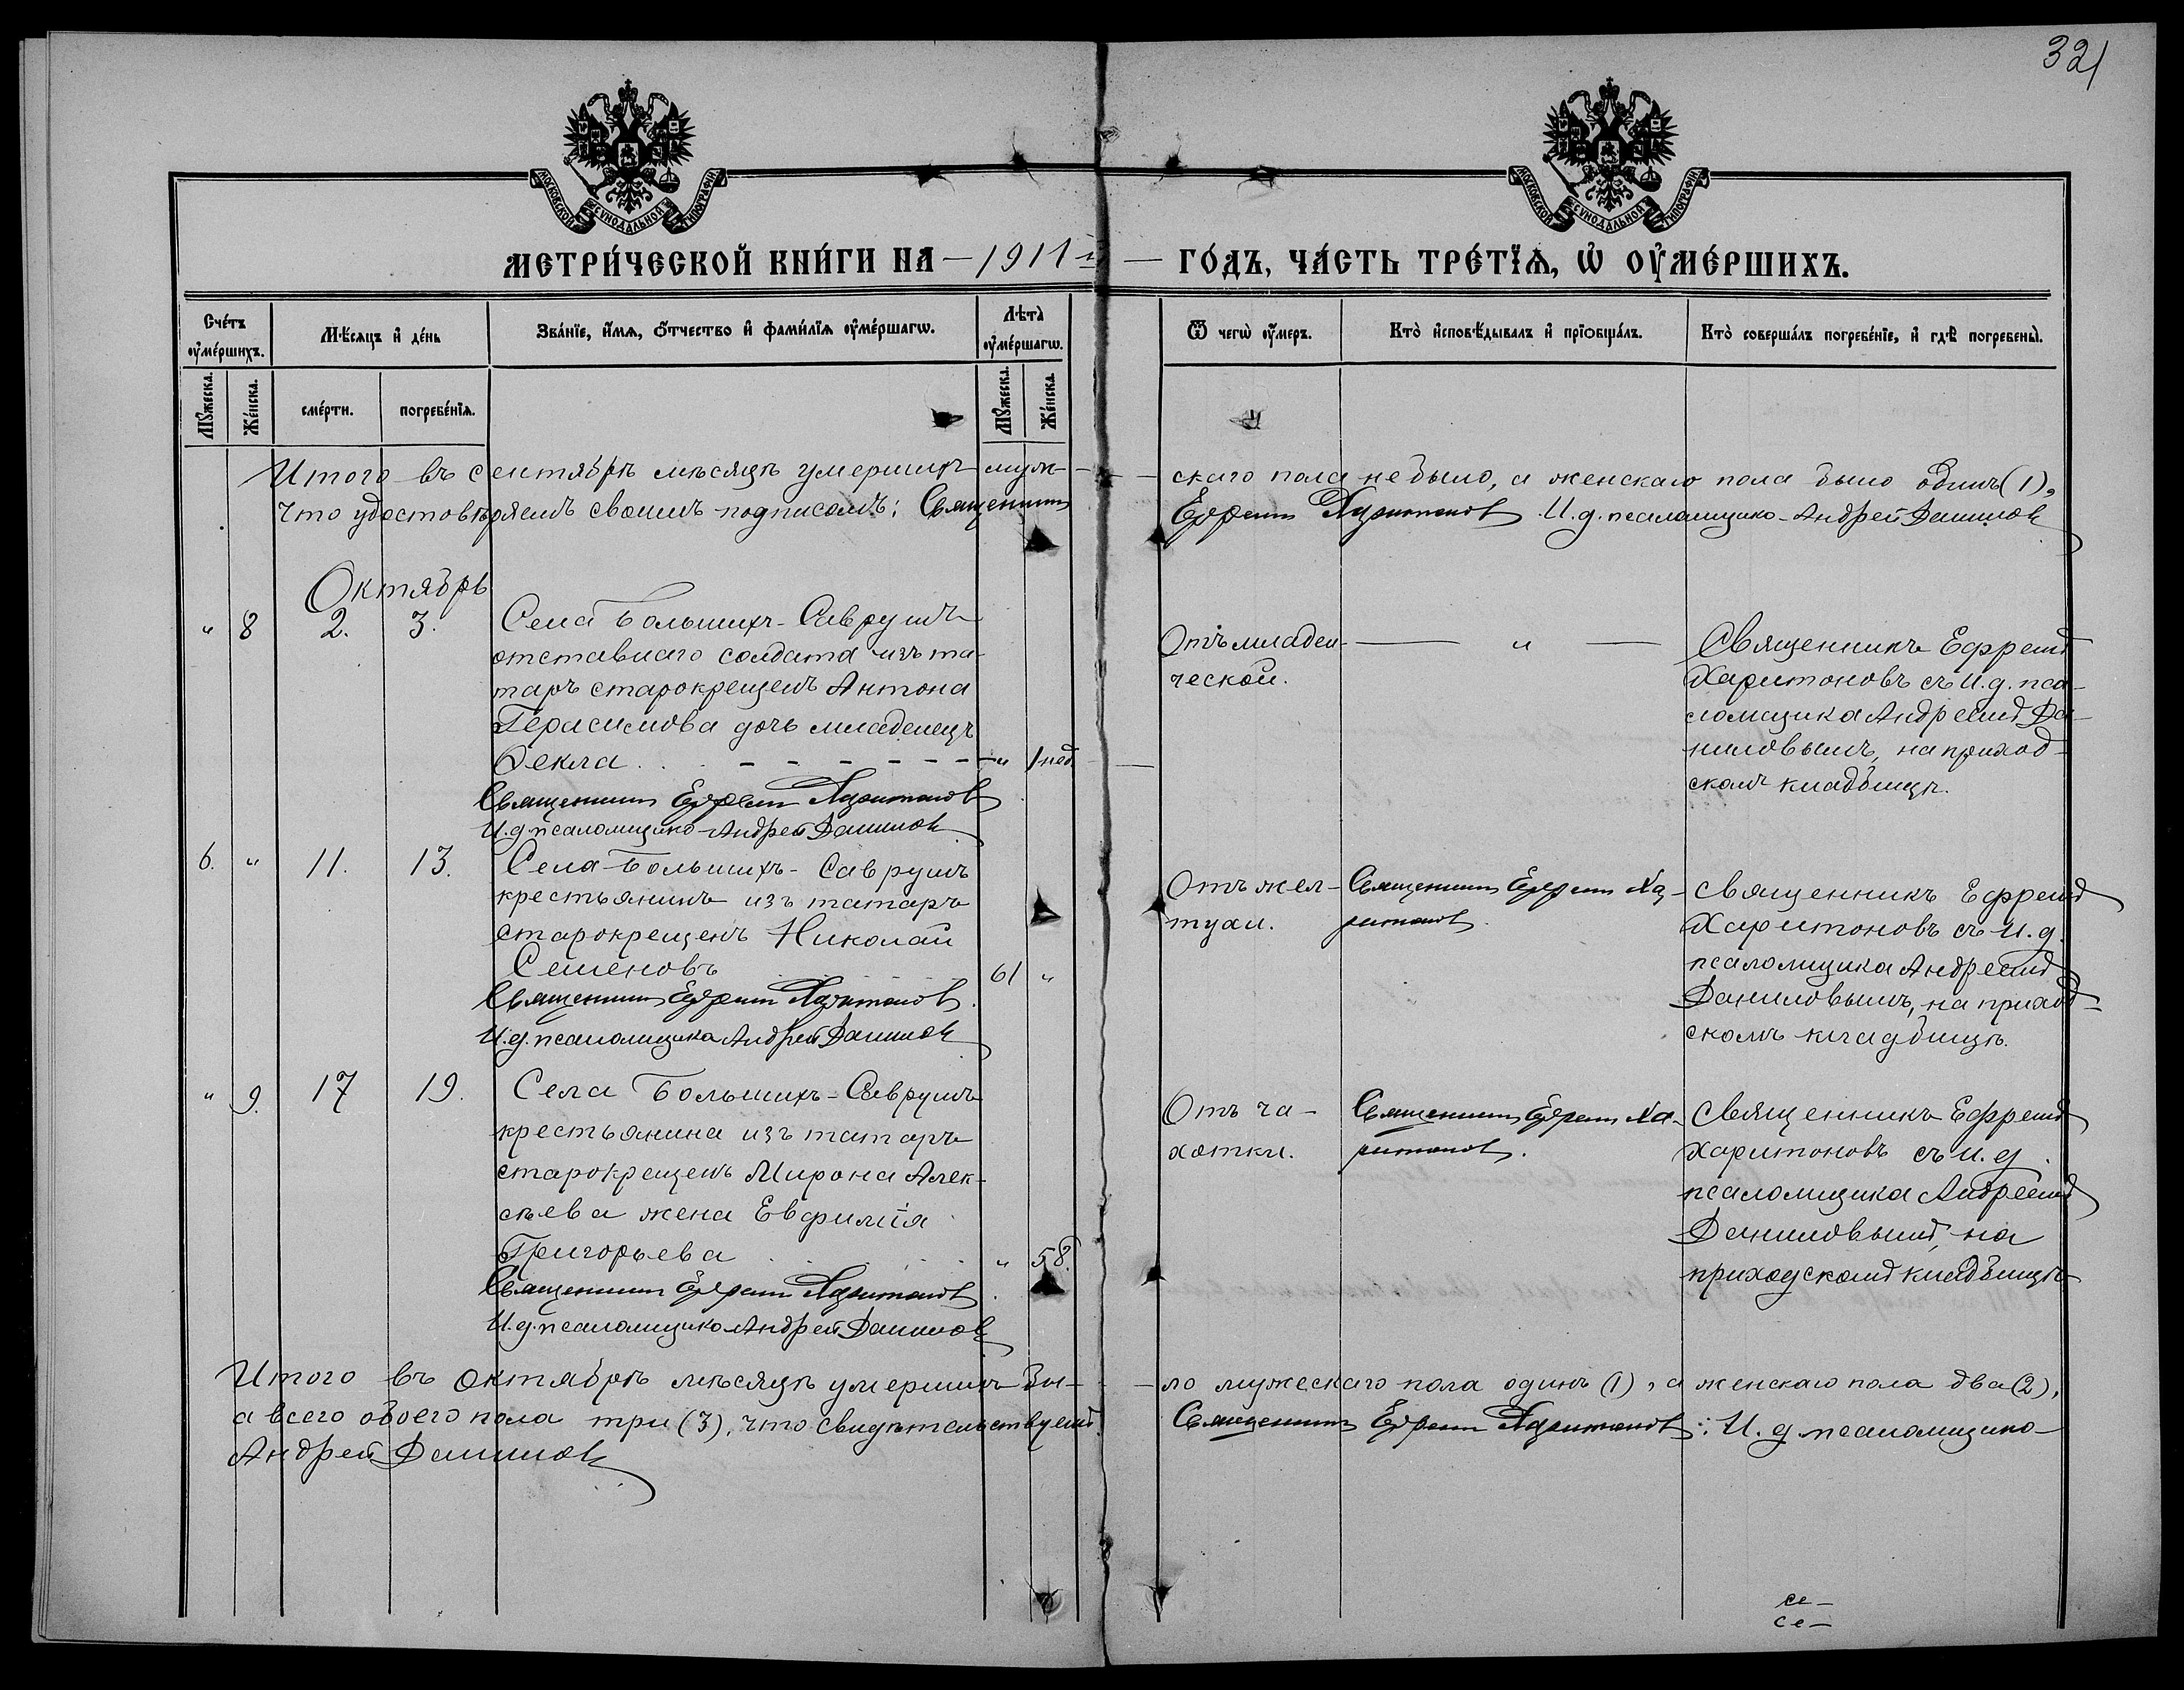 321
МОСКОВСКОЙ СѴНОДАЛЬНОЙ ТИПОГРАФІИ
МОСКОВСКОЙ СѴНОДАЛЬНОЙ ТИПОГРАФІИ
МЕТРИ́ЧЕСКОЙ КНИ́ГИ НА — 1911 й — ГО́ДЪ, ЧА́СТЬ ТРЕ́ТЇѦ, Ѡ҆ ОУ҆МЕ́РШИХЪ.
Сче́тъ оу҆ме́ршихъ.
Мѣ́сяцъ и҆ де́нь
Зва́нїе, и҆́мѧ, ѻ҆́тчество и҆ фами́лїѧ оу҆ме́ршагѡ.
Лѣта̀ оу҆ме́ршагѡ.
Ѿ чегѡ̀ оу҆́меръ.
Кто̀ и҆сповѣ́дывалъ и҆ прїѻбща́лъ.
Кто̀ соверша́лъ погребе́нїе, и҆ гдѣ̀ погребены̀.
Мꙋ́жеска.
Же́нска.
сме́рти.
погребе́нїѧ.
Мꙋ́жеска.
Же́нска.
Итого въ сентябрѣ мѣсяцѣ умершихъ муж- — скаго пола не было, а женскаго пола было одинъ (1),
что удостовѣряемъ своимъ подписомъ: Священникъ Ефремъ Харитоновъ. И. д. псаломщика Андрей Даниловъ
Октябрь
" 8 2. 3.
Села Большихъ-Саврушъ
отставнаго солдата изъ та-
таръ старокрещенъ Антона
Герасимова дочь младенецъ
Ѳекла. . . - - - - - - - " 1 нед.
Священникъ Ефремъ Харитоновъ
И. д. псаломщика Андрей Даниловъ
Отъ младен-
ческой.
— " —
Священникъ Ефремъ
Харитоновъ съ и. д. пса-
ломщика Андреемъ Да-
ниловымъ, на приход-
скомъ кладбищѣ.
6. " 11. 13.
Села Большихъ-Саврушъ
крестьянинъ изъ татаръ
старокрещенъ Николай
Семеновъ 61 "
Священникъ Ефремъ Харитоновъ.
И. д. псаломщика Андрей Даниловъ
Отъ жел-
тухи.
Священникъ Ефремъ Ха-
ритоновъ.
Священникъ Ефремъ
Харитоновъ съ и. д.
псаломщика Андреемъ
Даниловымъ, на приход-
скомъ кладбищѣ.
" 9. 17 19.
Села Большихъ-Саврушъ
крестьянина изъ татаръ
старокрещенъ Мирона Алек-
сѣева жена Евфимія
Григорьева . . . . . " 58.
Священникъ Ефремъ Харитоновъ.
И. д. псаломщика Андрей Даниловъ
Отъ ча-
хотки.
Священникъ Ефремъ Ха-
ритоновъ.
Священникъ Ефремъ
Харитоновъ съ и. д.
псаломщика Андреемъ
Даниловымъ, на
приходскомъ кладбищѣ
Итого въ октябрѣ мѣсяцѣ умершихъ бы- — ло мужескаго пола одинъ (1), а женскаго пола два (2),
а всего обоего пола три (3), что свидѣтельствуемъ: Священникъ Ефремъ Харитоновъ: И. д. псаломщика
Андрей Даниловъ
се—
се—